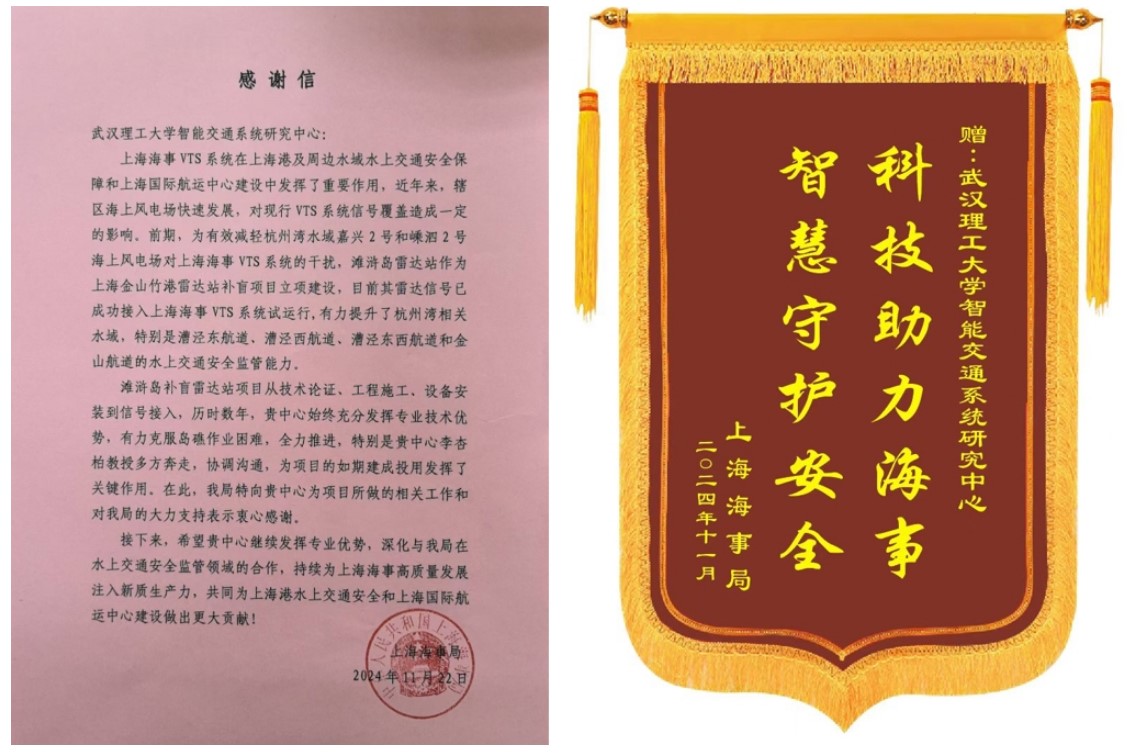 感谢信
武汉理工大学智能交通系统研究中心：
上海海事 VTS 系统在上海港及周边水域水上交通安全保
障和上海国际航运中心建设中发挥了重要作用，近年来，辖
区海上风电场快速发展，对现行 VTS 系统信号覆盖造成一定
的影响。前期，为有效减轻杭州湾水域嘉兴 2 号和嵊泗 2 号
海上风电场对上海海事 VTS 系统的干扰，滩浒岛雷达站作为
上海金山竹港雷达站补盲项目立项建设，目前其雷达信号已
成功接入上海海事 VTS 系统试运行，有力提升了杭州湾相关
水域，特别是漕泾东航道、漕泾西航道、漕泾东西航道和金
山航道的水上交通安全监管能力。
滩浒岛补盲雷达站项目从技术论证、工程施工、设备安
装到信号接入，历时数年，贵中心始终充分发挥专业技术优
势，有力克服岛礁作业困难，全力推进，特别是贵中心李杏
柏教授多方奔走，协调沟通，为项目的如期建成投用发挥了
关键作用。在此，我局特向贵中心为项目所做的相关工作和
对我局的大力支持表示衷心感谢。
接下来，希望贵中心继续发挥专业优势，深化与我局在
水上交通安全监管领域的合作，持续为上海海事高质量发展
注入新质生产力，共同为上海港水上交通安全和上海国际航
运中心建设做出更大贡献！
上海海事局
2024 年 11 月 22 日
赠：武汉理工大学智能交通系统研究中心
科技助力海事
智慧守护安全
上海海事局
二〇二四年十一月